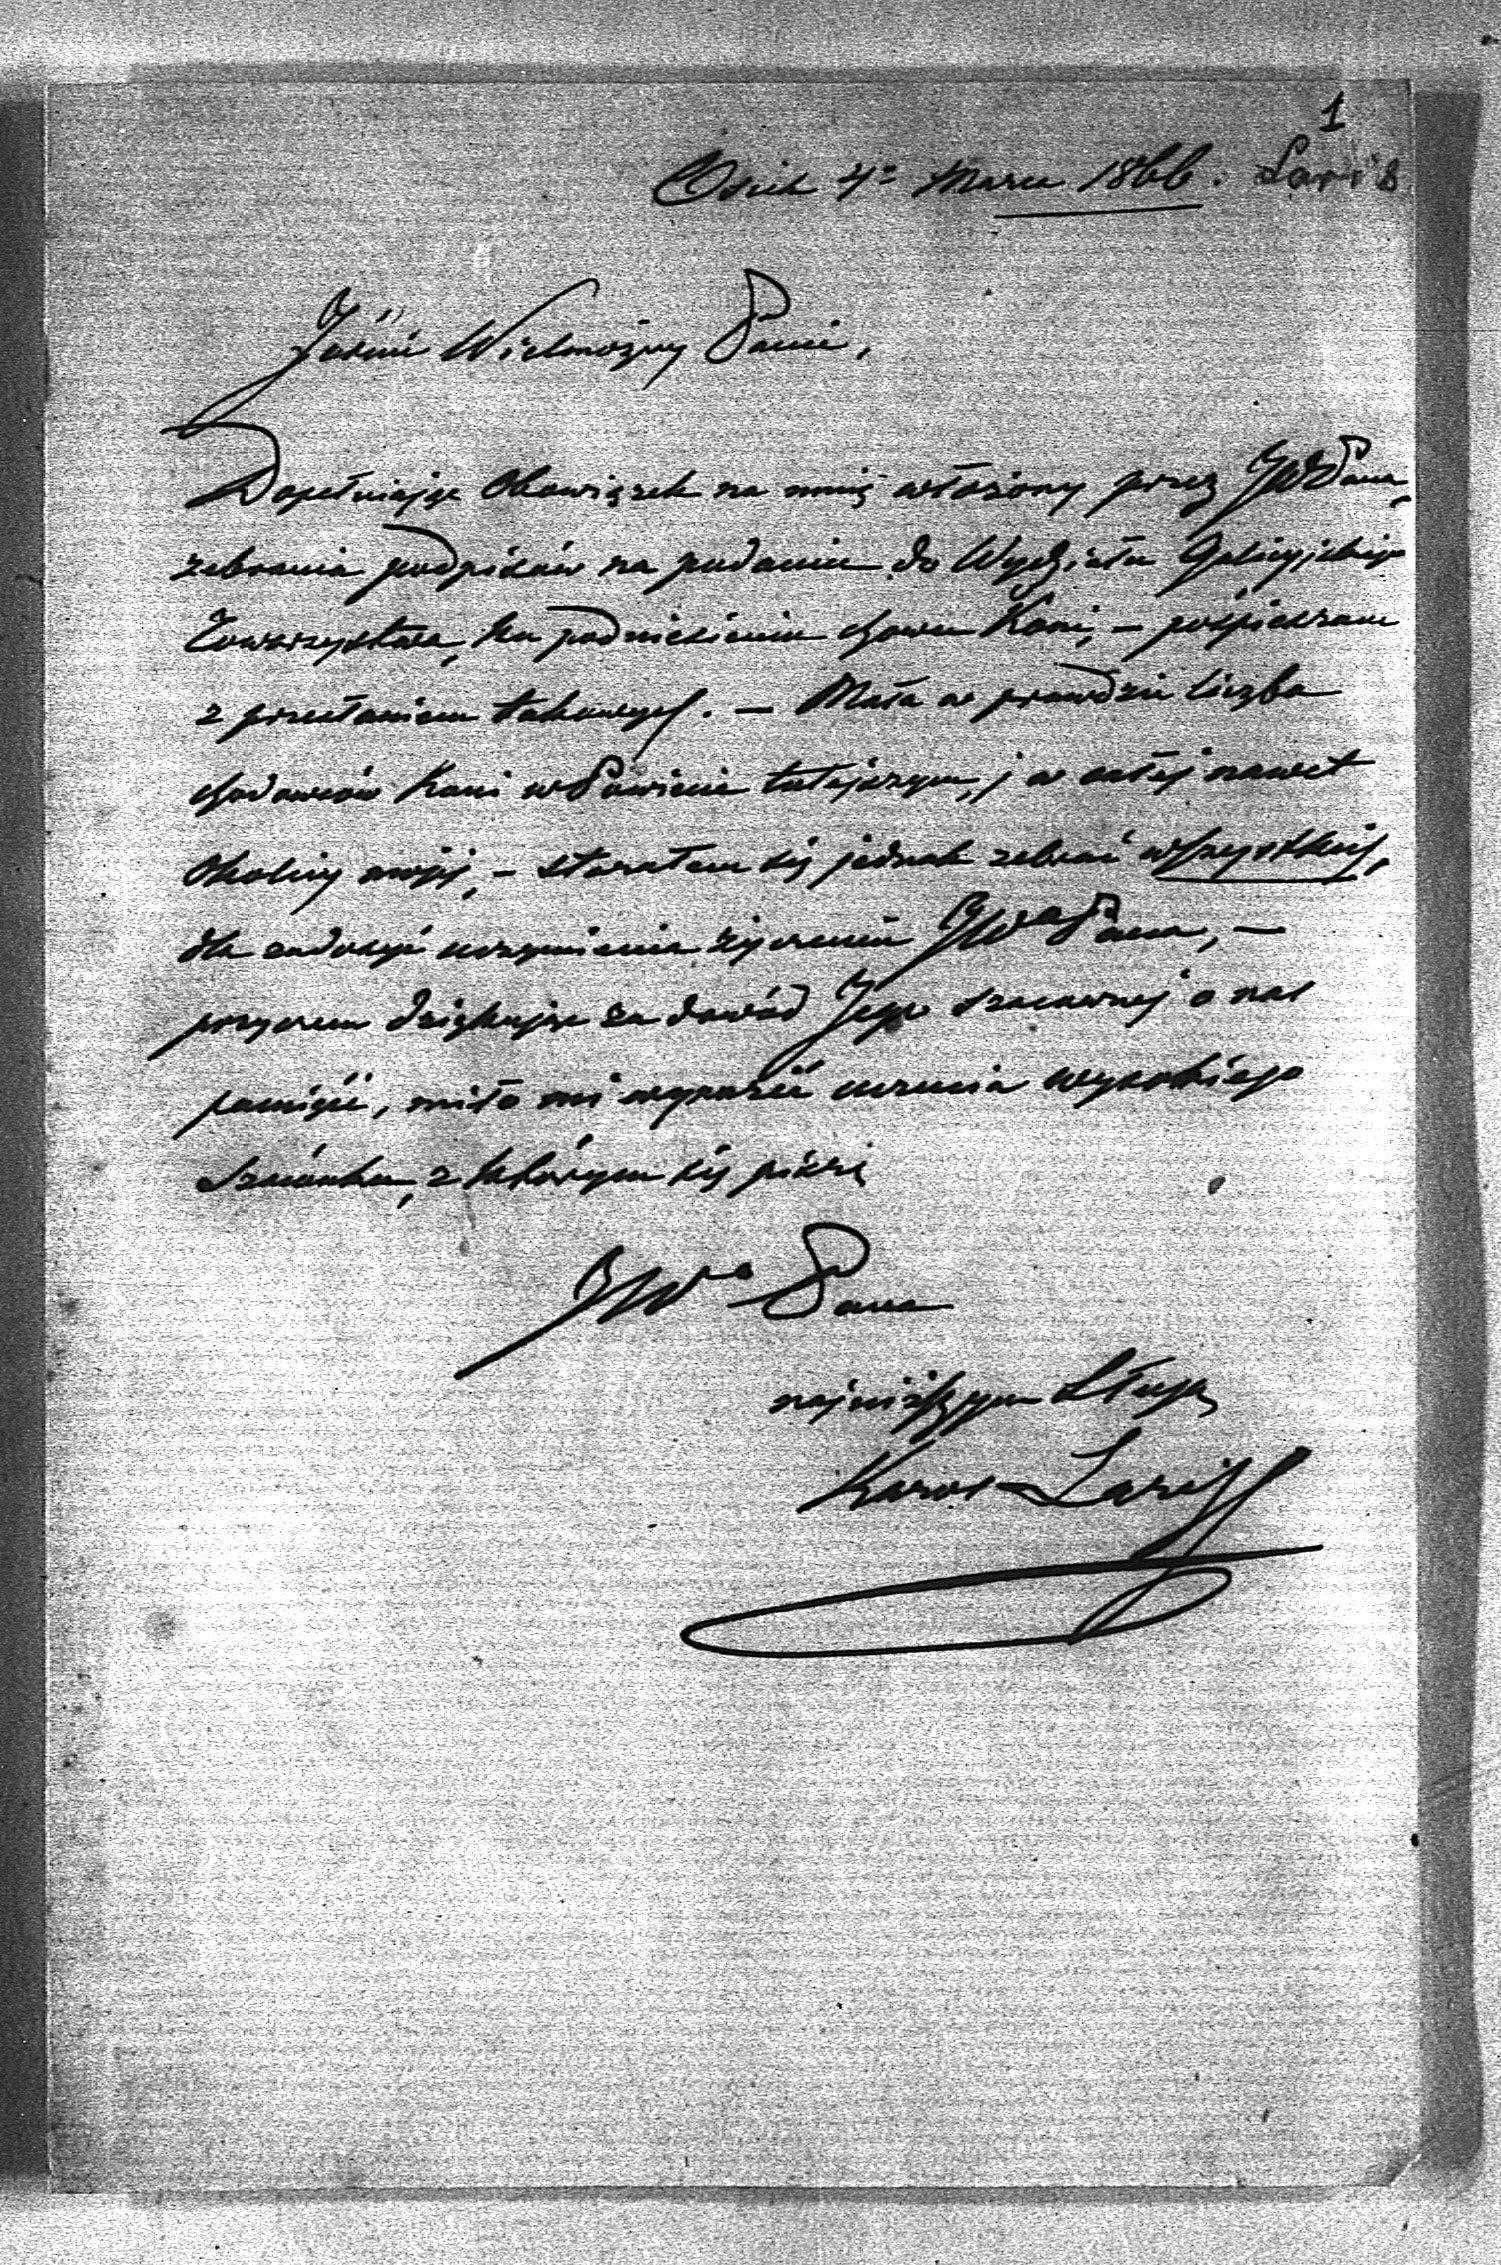 1
Osiek 4º Marca 1866. Laris
Jaśnie Wielmożny Panie,
Dopełniając obowiązek na mnię włożony przez JW Pana,
zebrania podpisów na podaniu do Wydziału Galicyjskiego
Towarzystwa, ku podniesieniu chowu Koni, – pośpieszam
z przesłaniem takowych. – Mała w prawdzie liczba
chodowców Koni w Powiecie tutejszym, j w całej nawet
okolicy mojej, – starałem się jednak zebrać wszystkich,
dla zadosyć uczynienia życzeniu JWº Pana, –
przyczem dziękując za dowód Jego szacownej o nas
pamięci, miło mi wyrazić uczucia wysokiego
szacunku, z którym się piszę
JWº Pana
najniższym sługą
Karol Laris